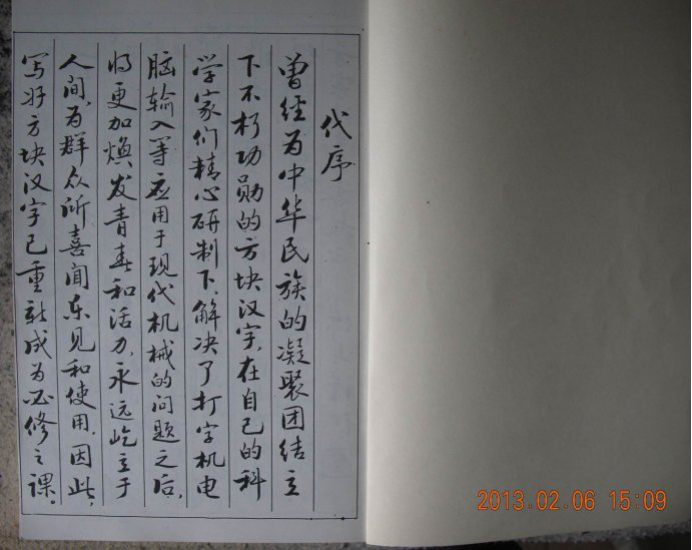 代序
曾经为中华民族的凝聚团结立
下不朽功勋的方块汉字，在自己的科
学家们精心研制下，解决了打字机电
脑输入等应用于现代机械的问题之后，
将更加焕发青春和活力，永远屹立于
人间，为群众所喜闻乐见和使用。因此，
写好方块汉字已重新成为必修之课。
2013.02.06 15:09